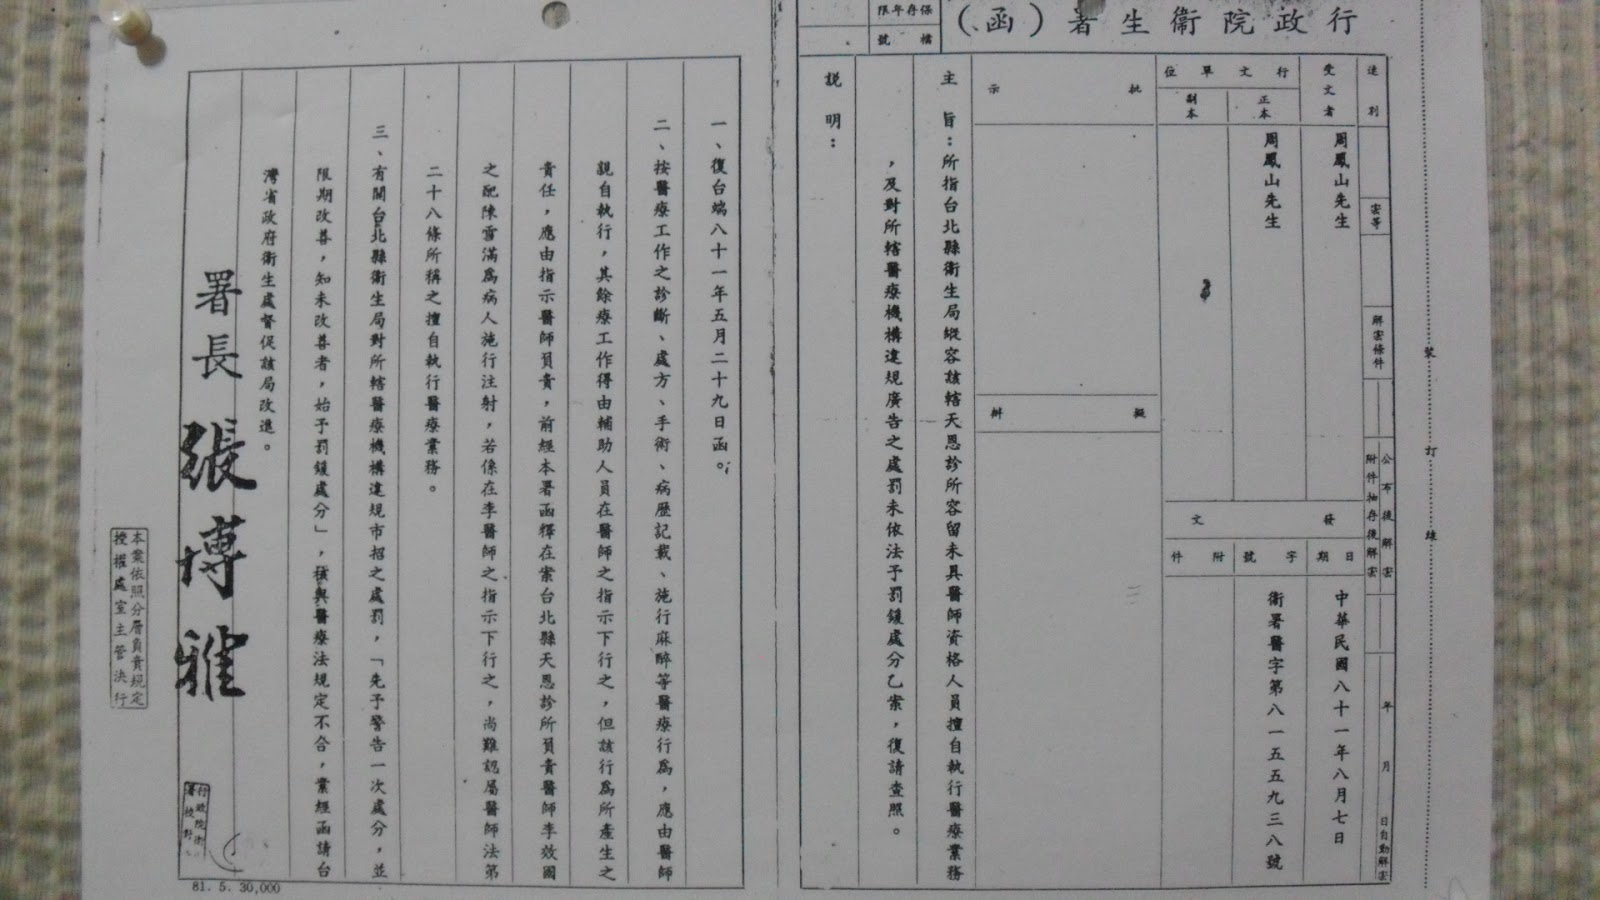 行政院衛生署（函）
保存年限
檔號
速別
密等
解密條件
公布後解密
附件抽存後解密
年月日自動解密
受文者
周鳳山先生
行文單位
正本
周鳳山先生
副本
發文
日期
中華民國八十一年八月七日
字號
衛署醫字第八一五五九三八號
附件
批示
擬辦
主旨：所指台北縣衛生局縱容該轄天恩診所容留未具醫師資格人員擅自執行醫療業務
，及對所轄醫療機構違規廣告之處罰未依法予罰鍰處分乙案，復請查照。
說明：
一、復台端八十一年五月二十九日函。
二、按醫療工作之診斷、處方、手術、病歷記載、施行麻醉等醫療行為，應由醫師
親自執行，其餘療工作得由輔助人員在醫師之指示下行之，但該行為所產生之
責任，應由指示醫師負責，前經本署函釋在案台北縣天恩診所負責醫師李效國
之配陳雪滿為病人施行注射，若係在李醫師之指示下行之，尚難認屬醫師法第
二十八條所稱之擅自執行醫療業務。
三、有關台北縣衛生局對所轄醫療機構違規市招之處罰，「先予警告一次處分，並
限期改善，知未改善者，始予罰鍰處分」，核與醫療法規定不合，業經函請台
灣省政府衛生處督促該局改進。
署長 張博雅
本案依照分層負責規定
授權處室主管決行
行政院衛
署校對
81. 5. 30,000
裝訂線